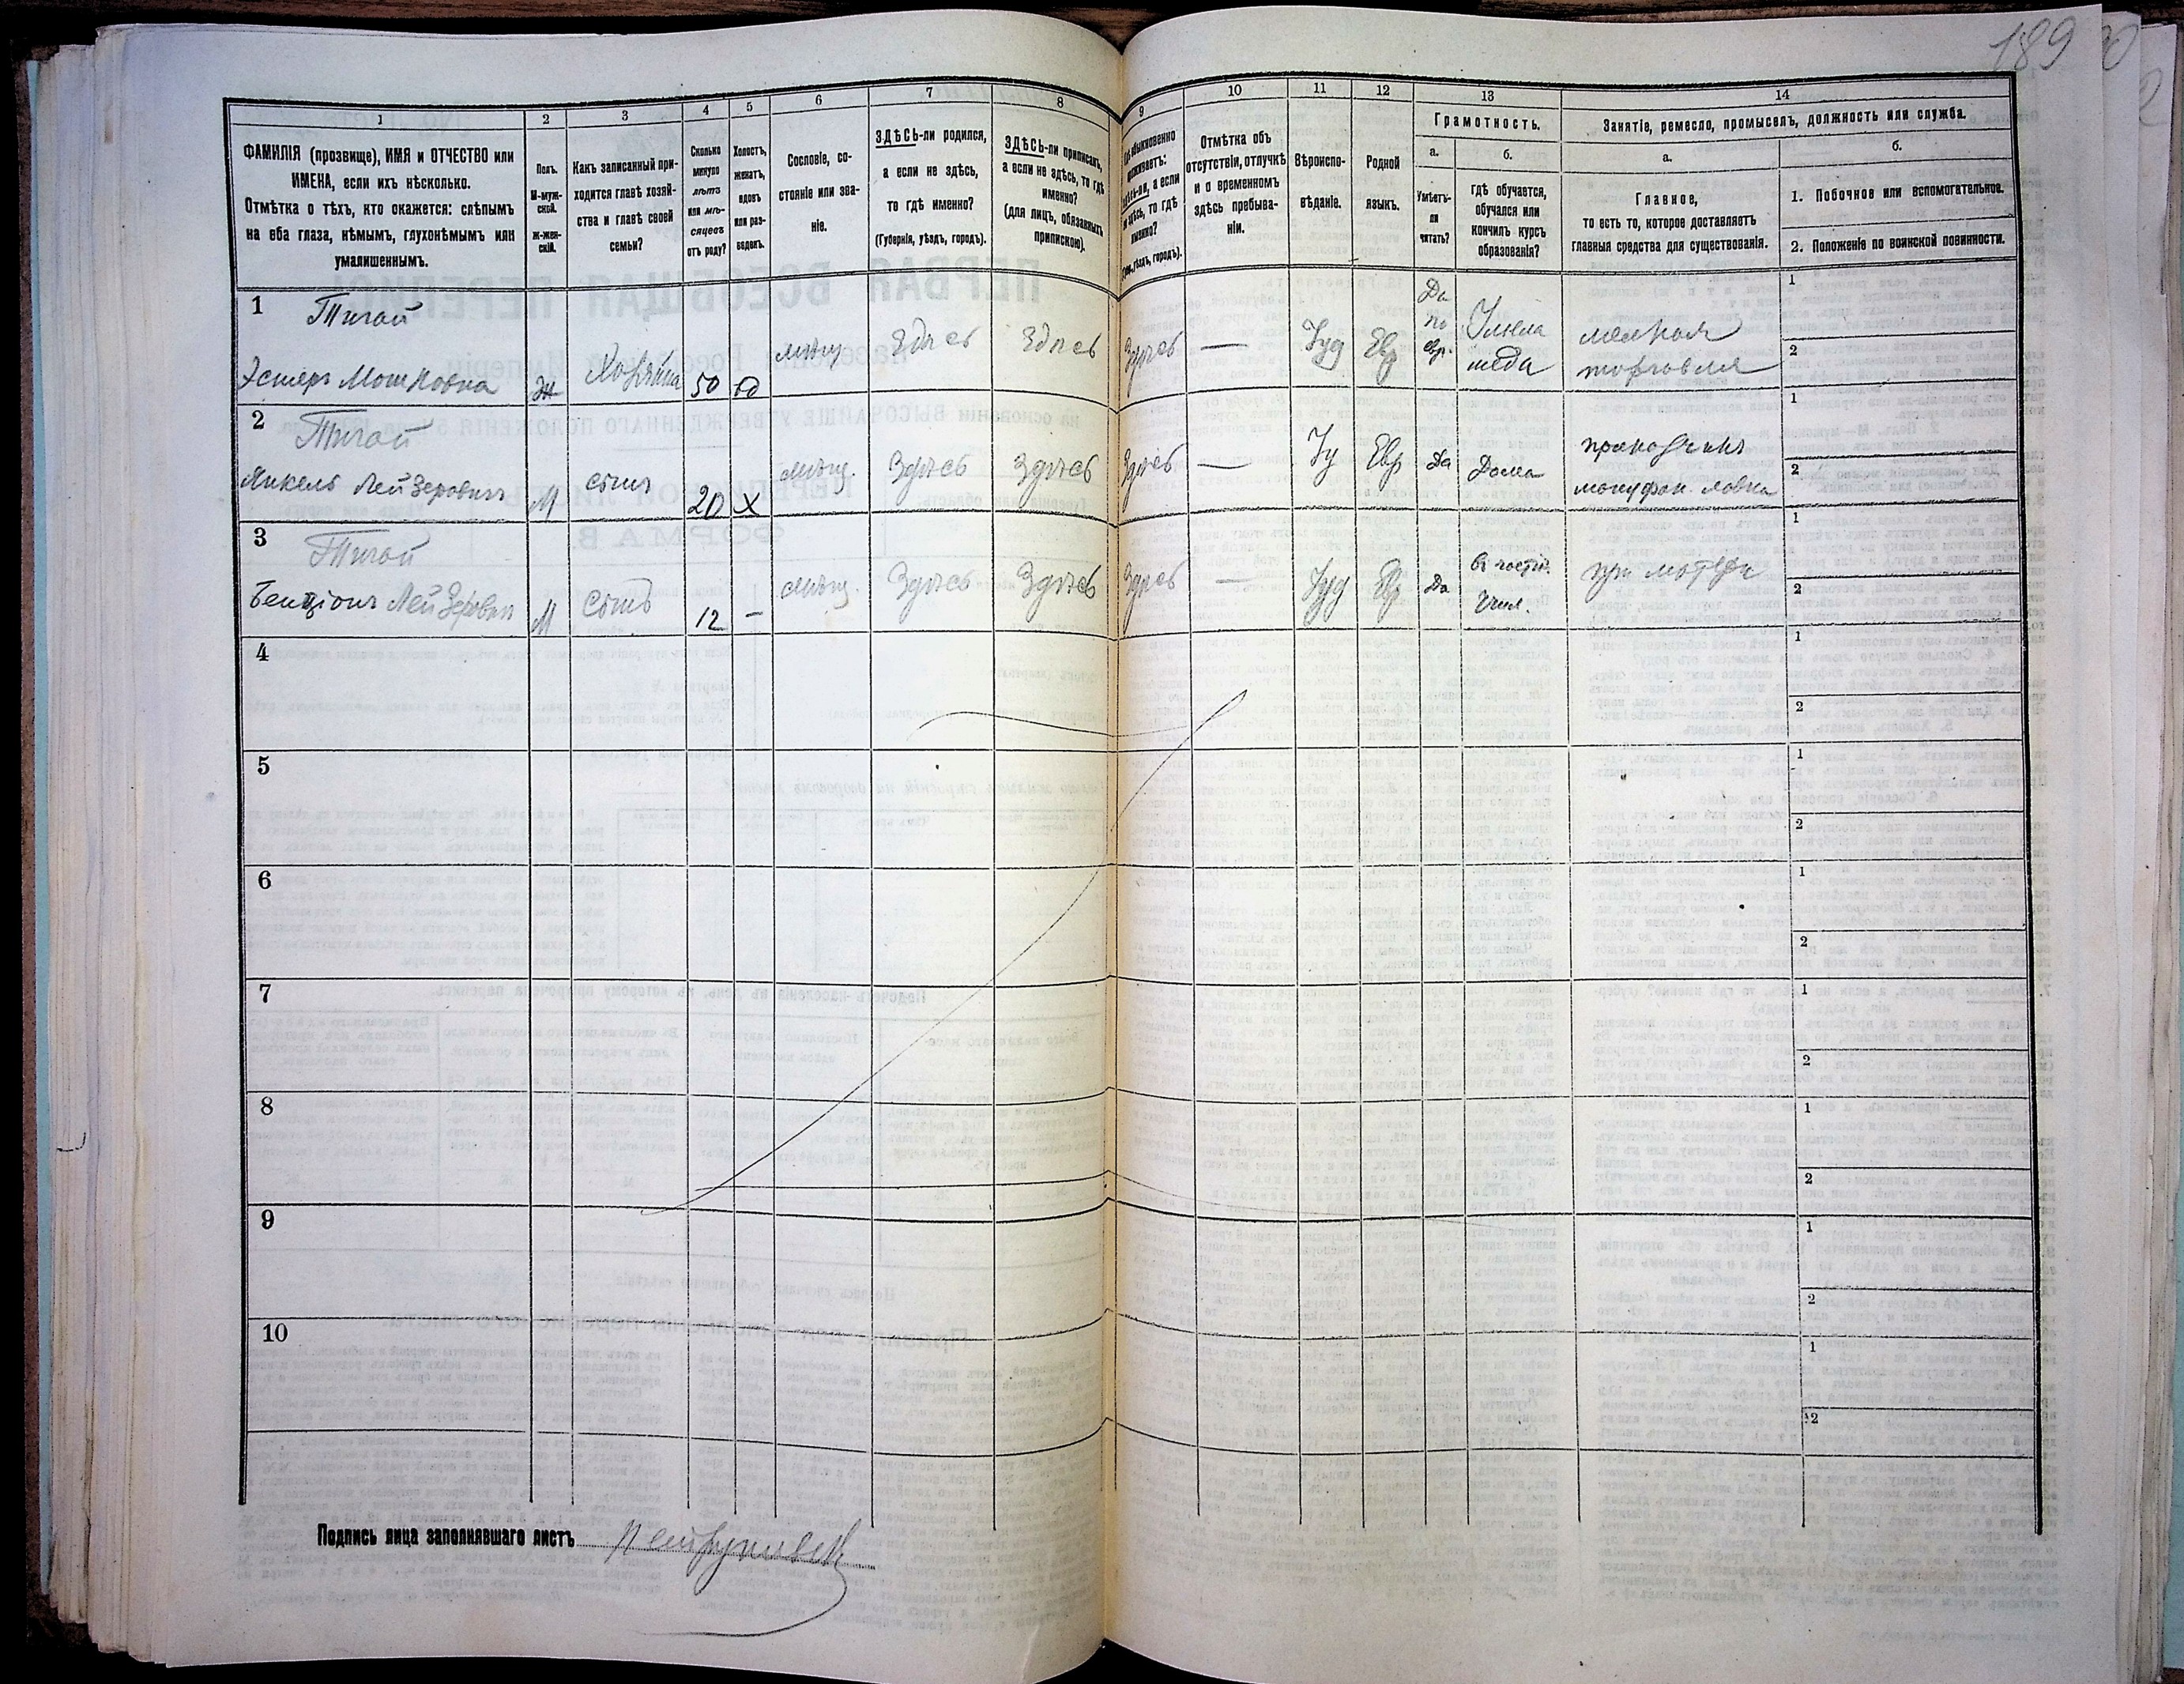 189
1
2
3
4
5
6
7
8
9
10
11
12
13
14
ФАМИЛІЯ (прозвище), ИМЯ и ОТЧЕСТВО или
ИМЕНА, если ихъ нѣсколько.
Отмѣтка о тѣхъ, кто окажется: слѣпымъ
на оба глаза, нѣмымъ, глухонѣмымъ или
умалишеннымъ.
Полъ.
М-муж-
ской.
ж-жен-
скій.
Какъ записанный при-
ходится главѣ хозяй-
ства и главѣ своей
семьи?
Сколько
минуло
лѣтъ
или мѣ-
сяцевъ
отъ роду?
Холостъ,
женатъ,
вдовъ
или раз-
веденъ.
Сословіе, со-
стояніе или зва-
ніе.
ЗДѢСЬ-ли родился,
а если не здѣсь,
то гдѣ именно?
(Губернія, уѣздъ, городъ).
ЗДѢСЬ-ли приписанъ,
а если не здѣсь, то гдѣ
именно?
(для лицъ, обязанныхъ
припискою).
обыкновенно
а если
здѣсь, то гдѣ
именно?
уѣздъ, городъ).
Отмѣтка объ
отсутствіи, отлучкѣ
и о временномъ
здѣсь пребыва-
ніи.
Вѣроиспо-
вѣданіе.
Родной
языкъ.
Грамотность.
а.
Умѣетъ-
ли
читать?
б.
гдѣ обучается,
обучался или
кончилъ курсъ
образованія?
Занятіе, ремесло, промыселъ, должность или служба.
а.
Главное,
то есть то, которое доставляетъ
главныя средства для существованія.
б.
1. Побочное или вспомогательное.
2. Положеніе по воинской повинности.
1
Тигай
Эстеръ Мошковна
Ж
Хозяйка
50
вд
мѣщ
Здѣсь
Здѣсь
Здѣсь
—
Іуд
Евр
Да
по
евр.
мелкая
торговля
1
2
2
Тигай
Янкель Лейзеровичъ
М
сынъ
20
X
мѣщ.
Здѣсь
Здѣсь
Здѣсь
—
Іу
Евр
Да
Дома
приказчикъ
мануфак. лавка
1
2
3
Тигай
Бенціонъ Лейзеровичъ
М
сынъ
12
—
мѣщ.
Здѣсь
Здѣсь
Здѣсь
—
Іуд
Евр
Да
въ частн.
Учил.
при матери
1
2
4
1
2
5
1
2
6
1
2
7
1
2
8
1
2
9
1
2
10
1
2
Подпись лица заполнявшаго листъ